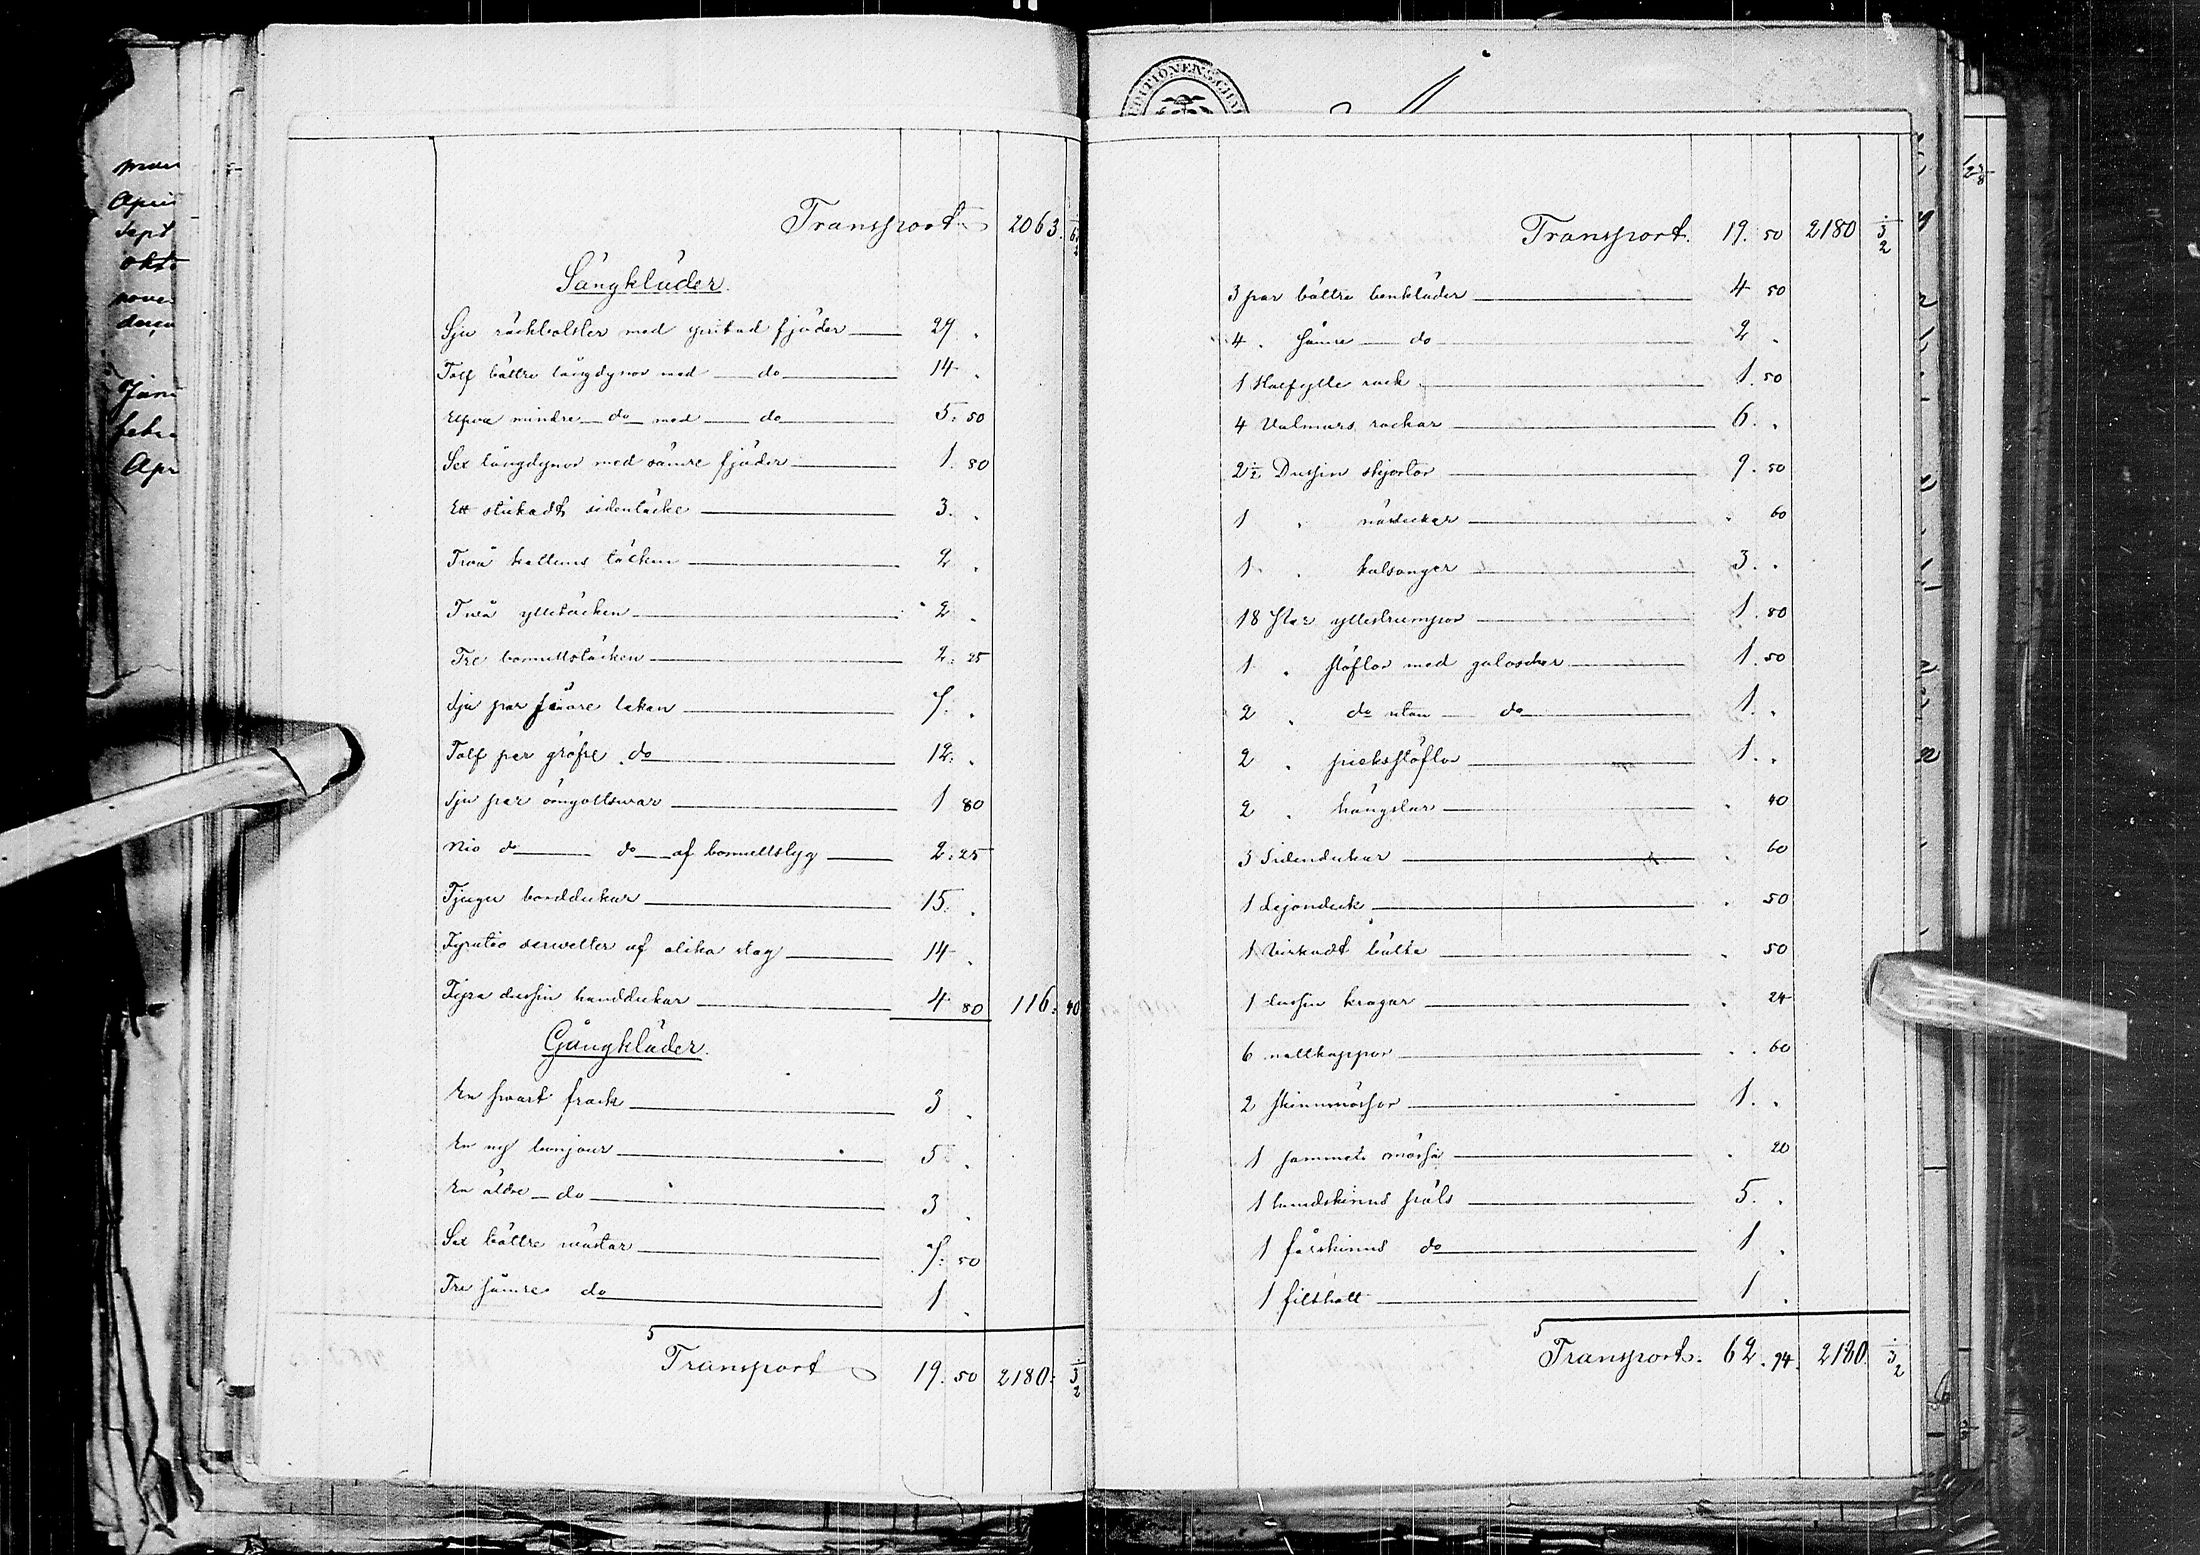 Transport 2063.
Sängkläder.
Sju räckbolster med spritad fjäder 29 .
Tolf bättre längdynor med do 14 .
Elfva mindre do med do 5: 50
Sex längdynor med sämre fjäder 1. 80
Ett stickadt sidentäcke 3. .
Två kattuns täcken 2 .
Två ylletäcken 2 .
Tre bomullstäcken 2: 25
Sju par finare lakan 7. .
Tolf par gröfre do 12. .
Sju par örngottsvar 1 80
Nio do do af bomullstyg 2: 25
Tjugu borddukar 15. .
Fyratio servetter af olika slag 14 .
Fyra dussin handdukar 4. 80 116: 40
Gångkläder.
En svart frack 3 .
En ny bonjour 5 .
En äldre do 3 .
Sex bättre västar 7: 50
Tre sämre do 1 .
Transport 19. 50 2180:
Transport. 19. 50 2180
3 par bättre benkläder 4 50
4 . sämre do 2 .
1 Halfylle rock 1. 50
4 Valmars rockar 6. .
2½ Dussin skjortor 9. 50
1 . näsdukar . 60
1 . kalsonger 3. .
18 Par yllestrumpor 1. 80
1 . stöflor med galoscher 1. 50
2 . do utan do 1. .
2 . pieksstöflor 1. .
2 . hängslar . 40
3 Sidendukar . 60
1 Lejonduk . 50
1 Virkadt bälte . 50
1 dussin kragar . 24
6 nattkappor . 60
2 skinnmössor 1. .
1 sammets mössa . 20
1 hundskinns päls 5. .
1 fårskinns do 1 .
1 filthatt 1 .
Transport. 62. 94. 2180.